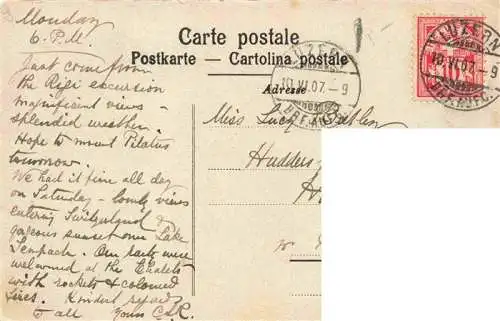 Monday
6. P.M.
Just come from
the Rigi excursion
magnificent views -
splendid weather.
Hope to mount Pilatus
tomorrow.
We had it fine all day
on Saturday - lovely views
entering Switzerland
gorgeous sunset over Lake
Sempach. Our party were
welcomed at the Chalets
with rockets & coloured
fires. Kindest regards
to all yours C.S.R.
Carte postale
Postkarte — Cartolina postale
Adresse
LUZERN
10.VI.07.-9
BRF.AUFG.
LUZERN
10.VI.07.-9
BRF.AUFG.
Miss Lucy
Hudders